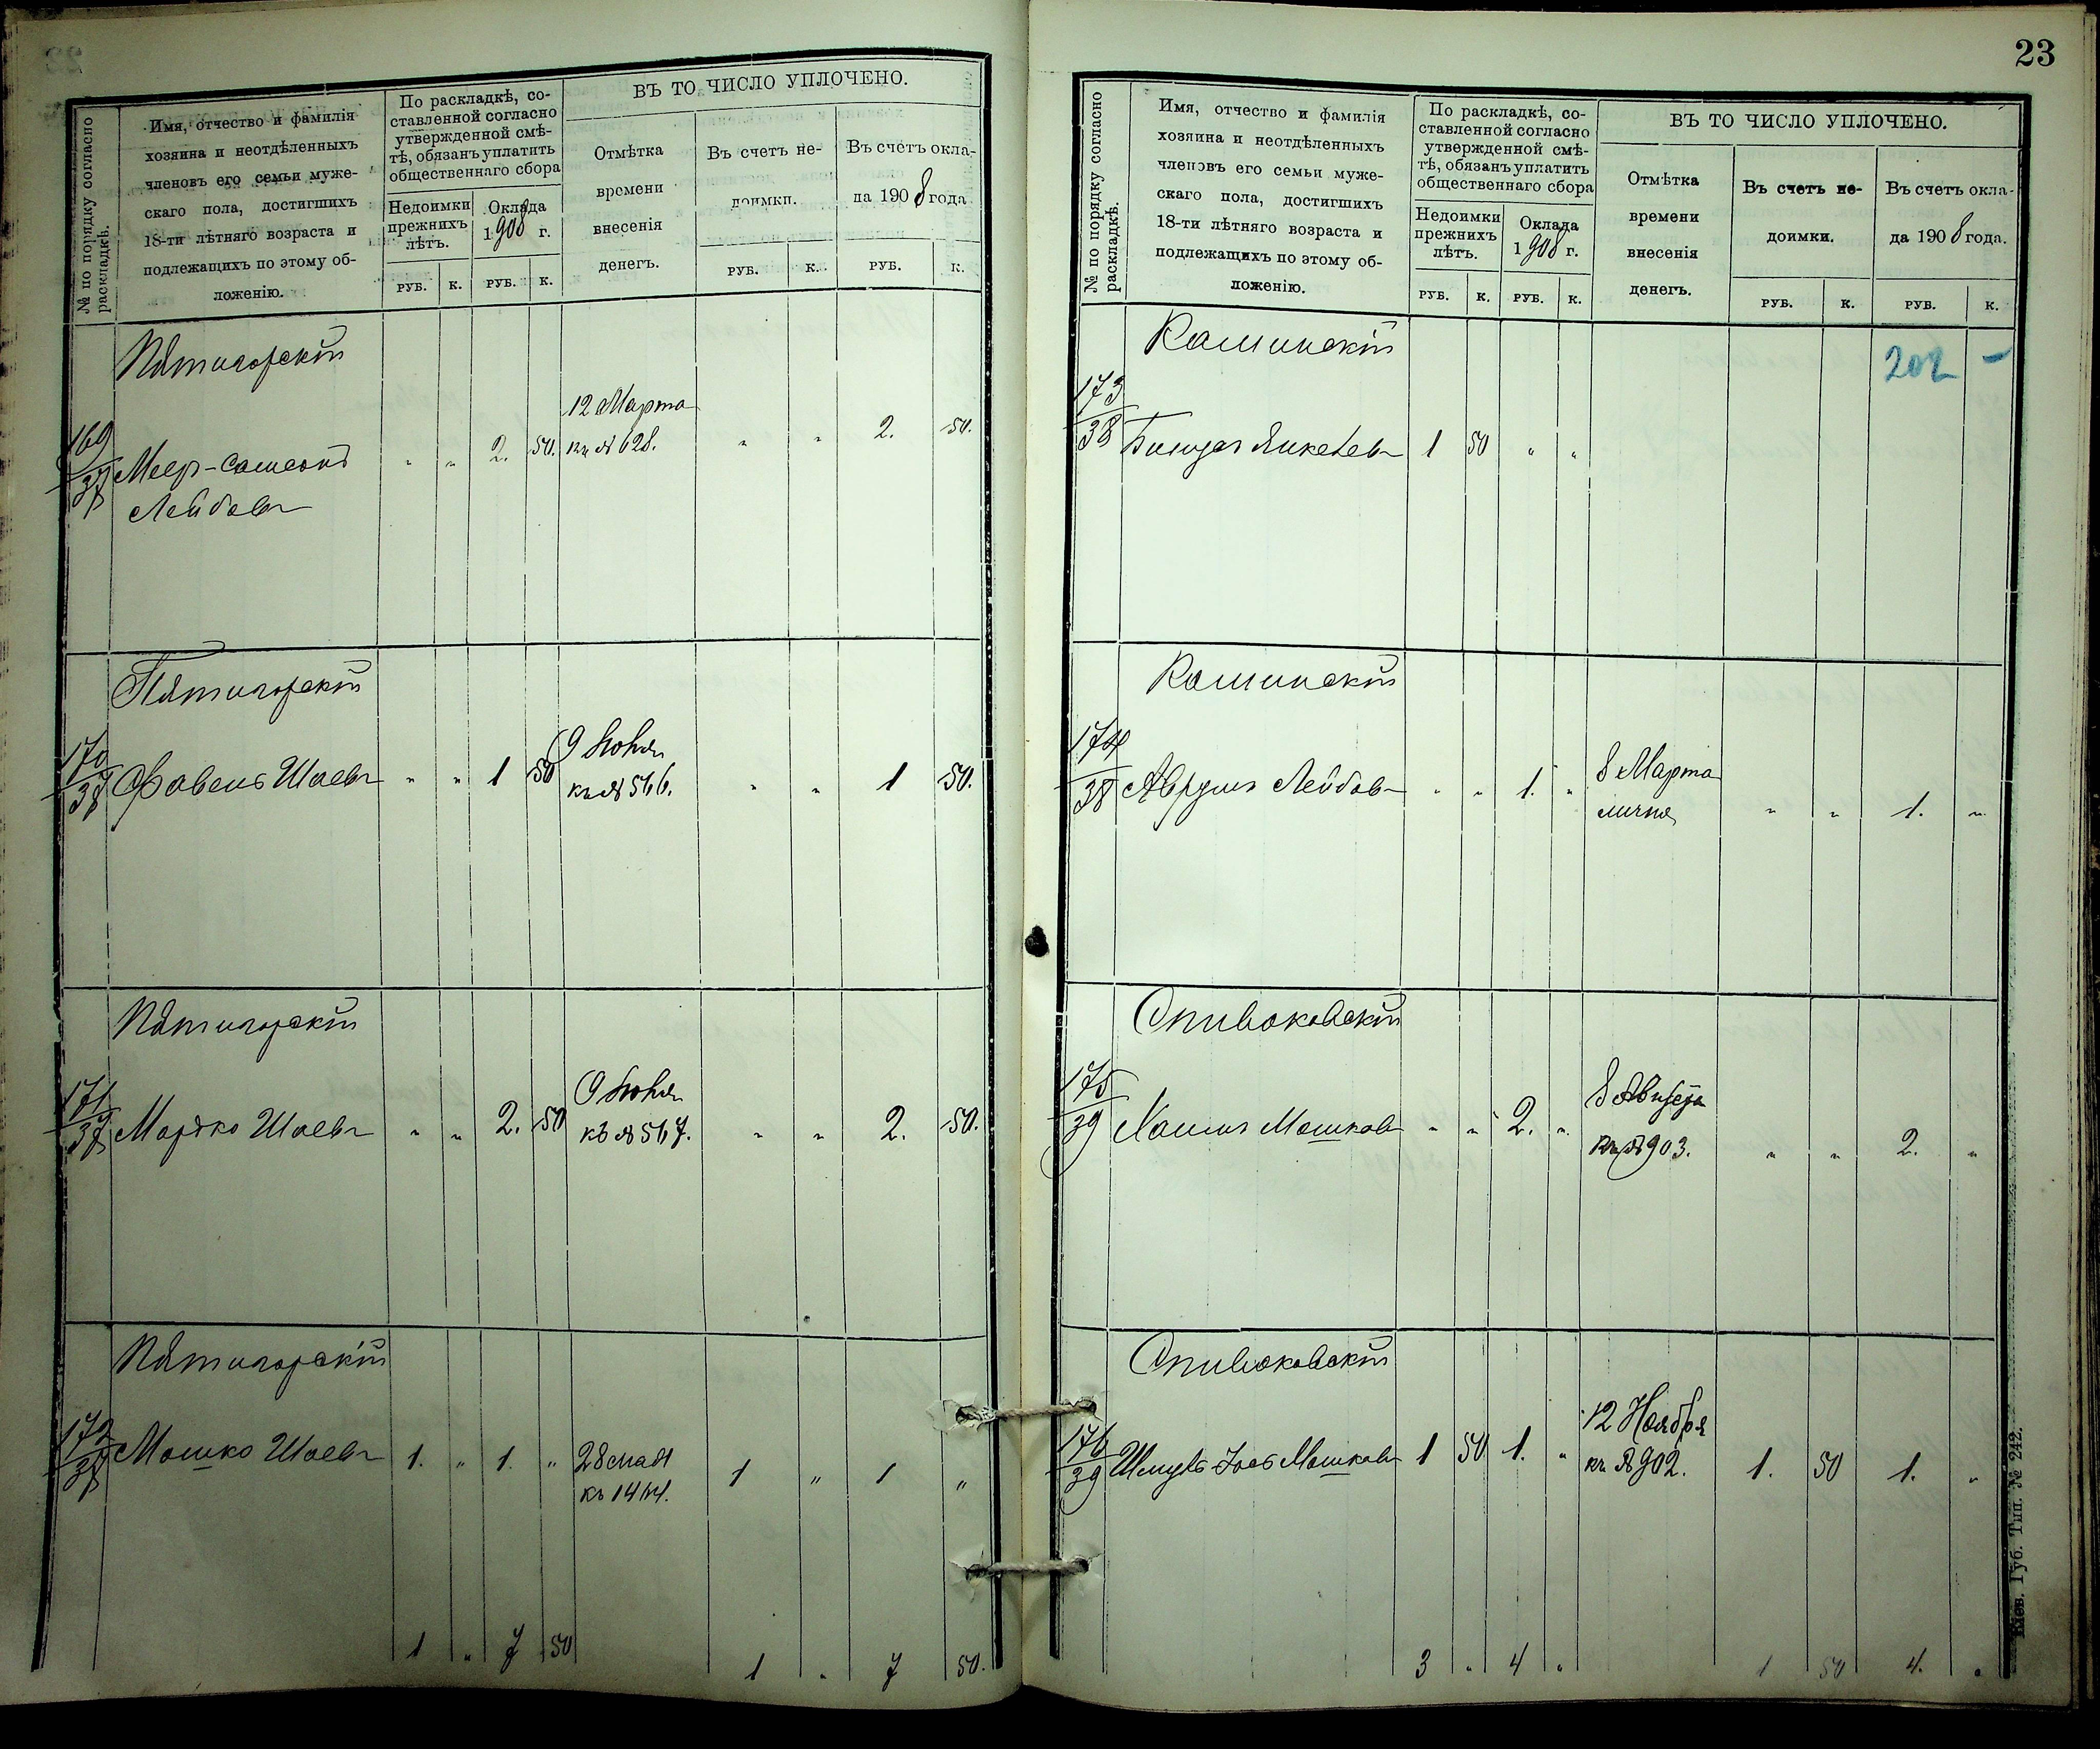 № по порядку согласно
раскладкѣ.
Имя, отчество и фамилія
хозяина и неотдѣленныхъ
членовъ его семьи муже-
скаго пола, достигшихъ
18-ти лѣтняго возраста и
подлежащихъ по этому об-
ложенію.
По раскладкѣ, со-
ставленной согласно
утвержденной смѣ-
тѣ, обязанъ уплатить
общественнаго сбора
Недоимки
прежнихъ
лѣтъ.
Оклада
1908 г.
РУБ. К. РУБ. К.
ВЪ ТО ЧИСЛО УПЛОЧЕНО.
Отмѣтка
времени
внесенія
денегъ.
Въ счетъ не-
доимки.
РУБ. К.
Въ счетъ окла-
да 1908 года
РУБ. К.
Пятигорскій
169
37
Меер-
Лейбовъ
" " 2. 50.
12 Марта
кв № 628.
" " 2. 50.
Пятигорскій
170
37
Шаевъ
" " 1 50
9
кв № 566.
" " 1 50.
Пятигорскій
171
37
Мордко Шаевъ
" " 2. 50
9
кв № 567.
" " 2. 50.
Пятигорскій
172
37
Мошко Шаевъ
1. " 1. "
28 мая
1 " 1 "
1 " 7 50
1 " 7 50.
23
№ по порядку согласно
раскладкѣ.
Имя, отчество и фамилія
хозяина и неотдѣленныхъ
членовъ его семьи муже-
скаго пола, достигшихъ
18-ти лѣтняго возраста и
подлежащихъ по этому об-
ложенію.
По раскладкѣ, со-
ставленной согласно
утвержденной смѣ-
тѣ, обязанъ уплатить
общественнаго сбора
Недоимки
прежнихъ
лѣтъ.
Оклада
1908 г.
РУБ. К. РУБ. К.
ВЪ ТО ЧИСЛО УПЛОЧЕНО.
Отмѣтка
времени
внесенія
денегъ.
Въ счетъ не-
доимки.
РУБ. К.
Въ счетъ окла-
да 1908 года.
РУБ. К.
202 -
173
38
1 50 " "
174
38
Лейбовъ
" " 1. "
8 Марта
" " 1. "
Спиваковскій
175
39
Хаимъ Мошковъ
" " 2. "
кв № 903.
" " 2. "
Спиваковскій
176
39
Мошковъ
1 50 1. "
12 Ноября
кв № 902.
1. 50 1. "
3 " 4 "
1 50 4. "
Кіев. Губ. Тип. № 242.